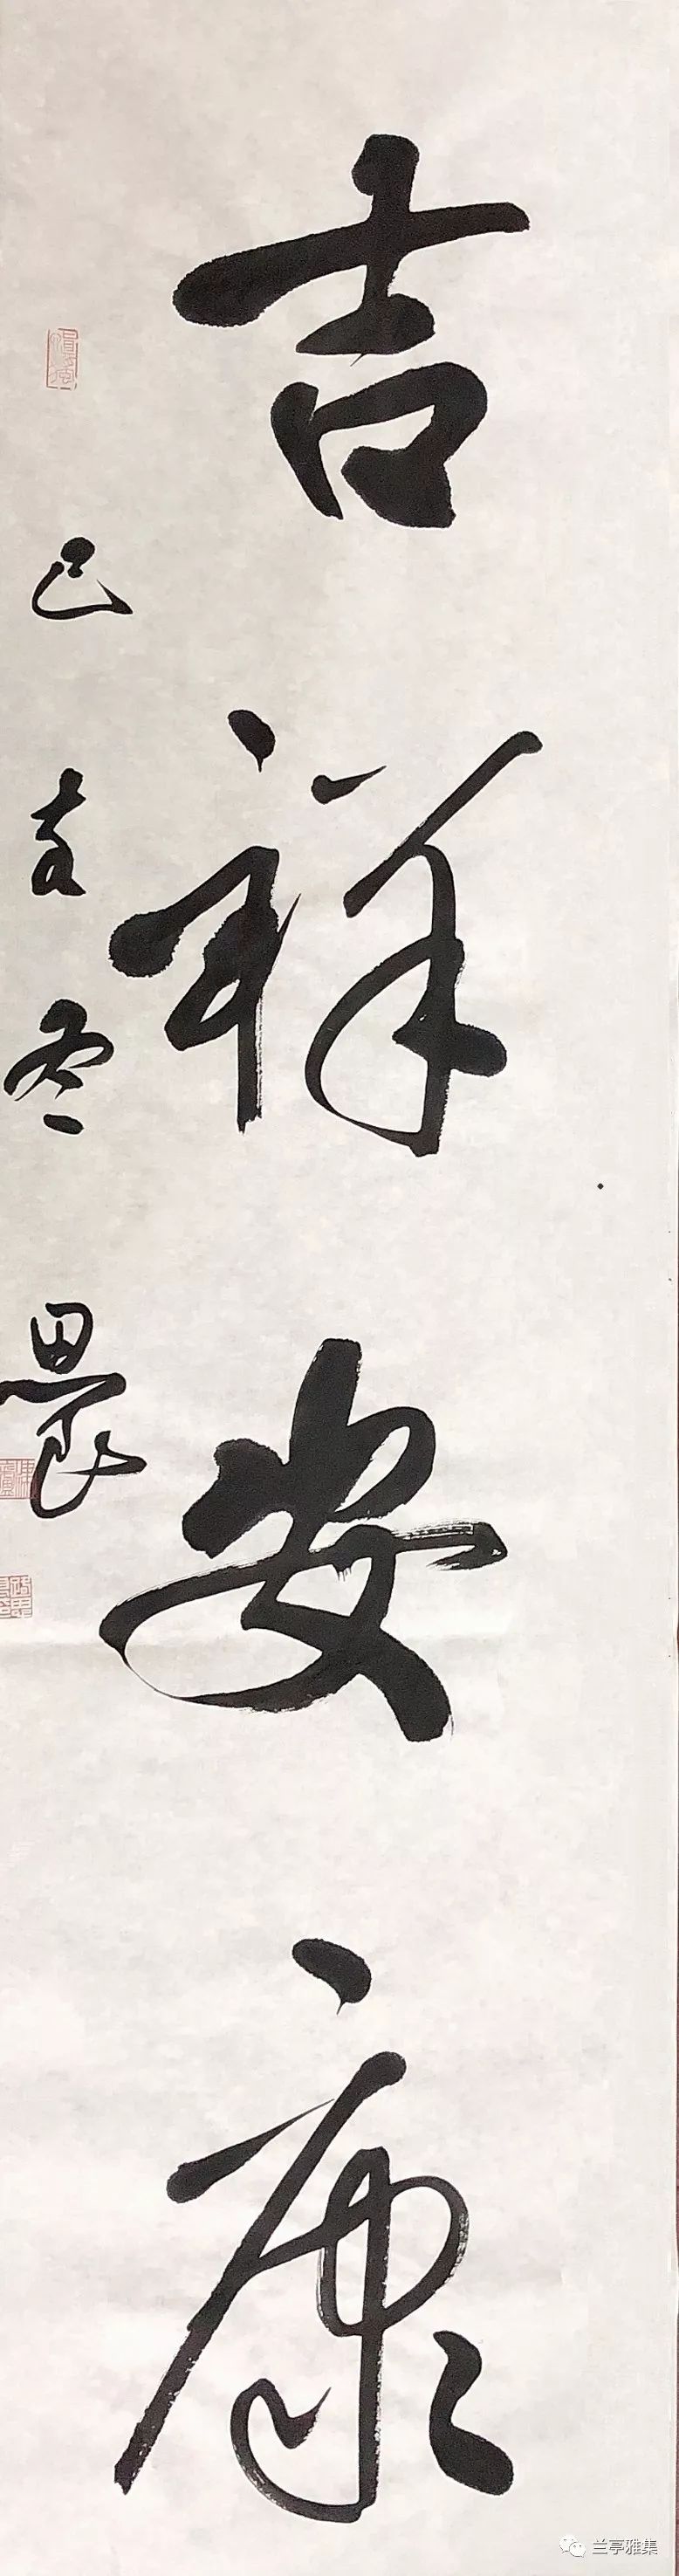 吉祥安康
己亥冬
兰亭雅集